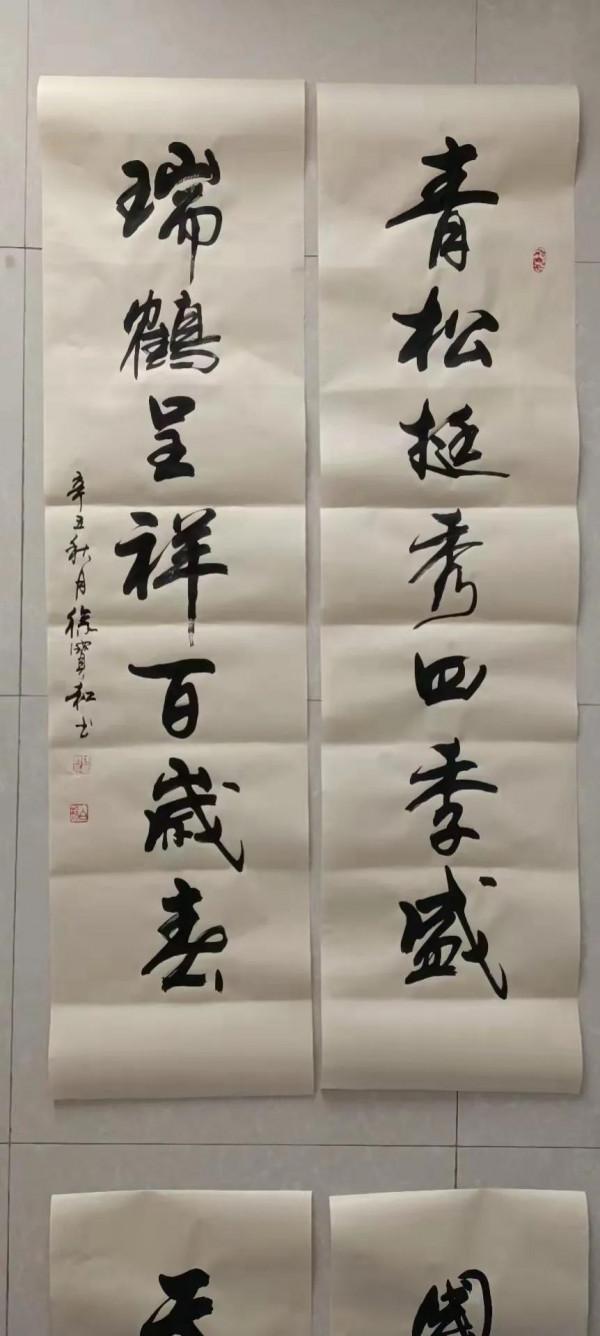 青松挺秀四季盛
瑞鶴呈祥百歲壽
辛丑秋月徐寶松书
國
天